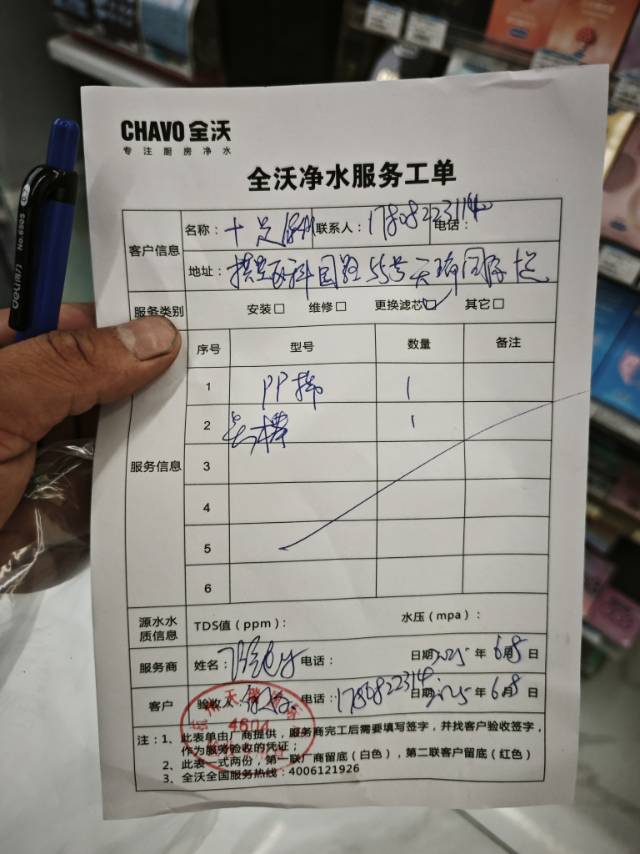 CHAVO 全沃
专注厨房净水
全沃净水服务工单
客户信息
名称：十足 联系人：17808223114 电话：
地址：国际
服务类别 安装□ 维修□ 更换滤芯☑ 其它□
服务信息
序号 型号 数量 备注
1 PP棉 1
2 1
3
4
5
6
源水水质信息 TDS值（ppm）： 水压（mpa）：
服务商 姓名： 电话： 日期2025年6月8日
客户 验收人： 电话：17808223114 2025年6月8日
4604
注：1、此表单由厂商提供，服务商完工后需要填写签字，并找客户验收签字，
作为服务验收的凭证；
2、此表一式两份，第一联厂商留底（白色），第二联客户留底（红色）
3、全沃全国服务热线：4006121926
No.6505
deli